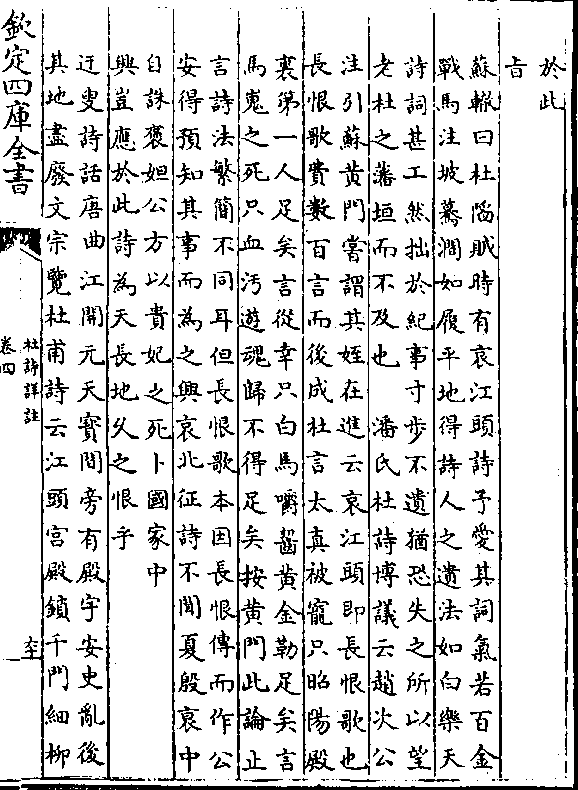 於此
旨
蘇轍曰杜陷賊時有哀江頭詩予愛其詞氣若百金
戰馬注坡驀澗如履平地得詩人之遺法如白樂天
詩詞甚工然拙於紀事寸步不遺猶恐失之所以望
老杜之藩垣而不及也　潘氏杜詩博議云趙次公
注引蘇黄門嘗謂其姪在進云哀江頭即長恨歌也
長恨歌費數百言而後成杜言太真被寵只昭陽殿
裏第一人足矣言從幸只白馬嚼齧黄金勒足矣言
馬嵬之死只血汚遊魂歸不得足矣按黄門此論止
言詩法繁簡不同耳但長恨歌本因長恨傳而作公
安得預知其事而為之興哀北征詩不聞夏殷哀中
自誅褒妲公方以貴妃之死卜國家中
興豈應於此詩為天長地久之恨乎
迂叟詩話唐曲江開元天寳間旁有殿宇安史亂後
其地盡廢文宗覽杜甫詩云江頭宫殿鎖千門細柳
欽定四庫全書
杜詩詳註
卷四